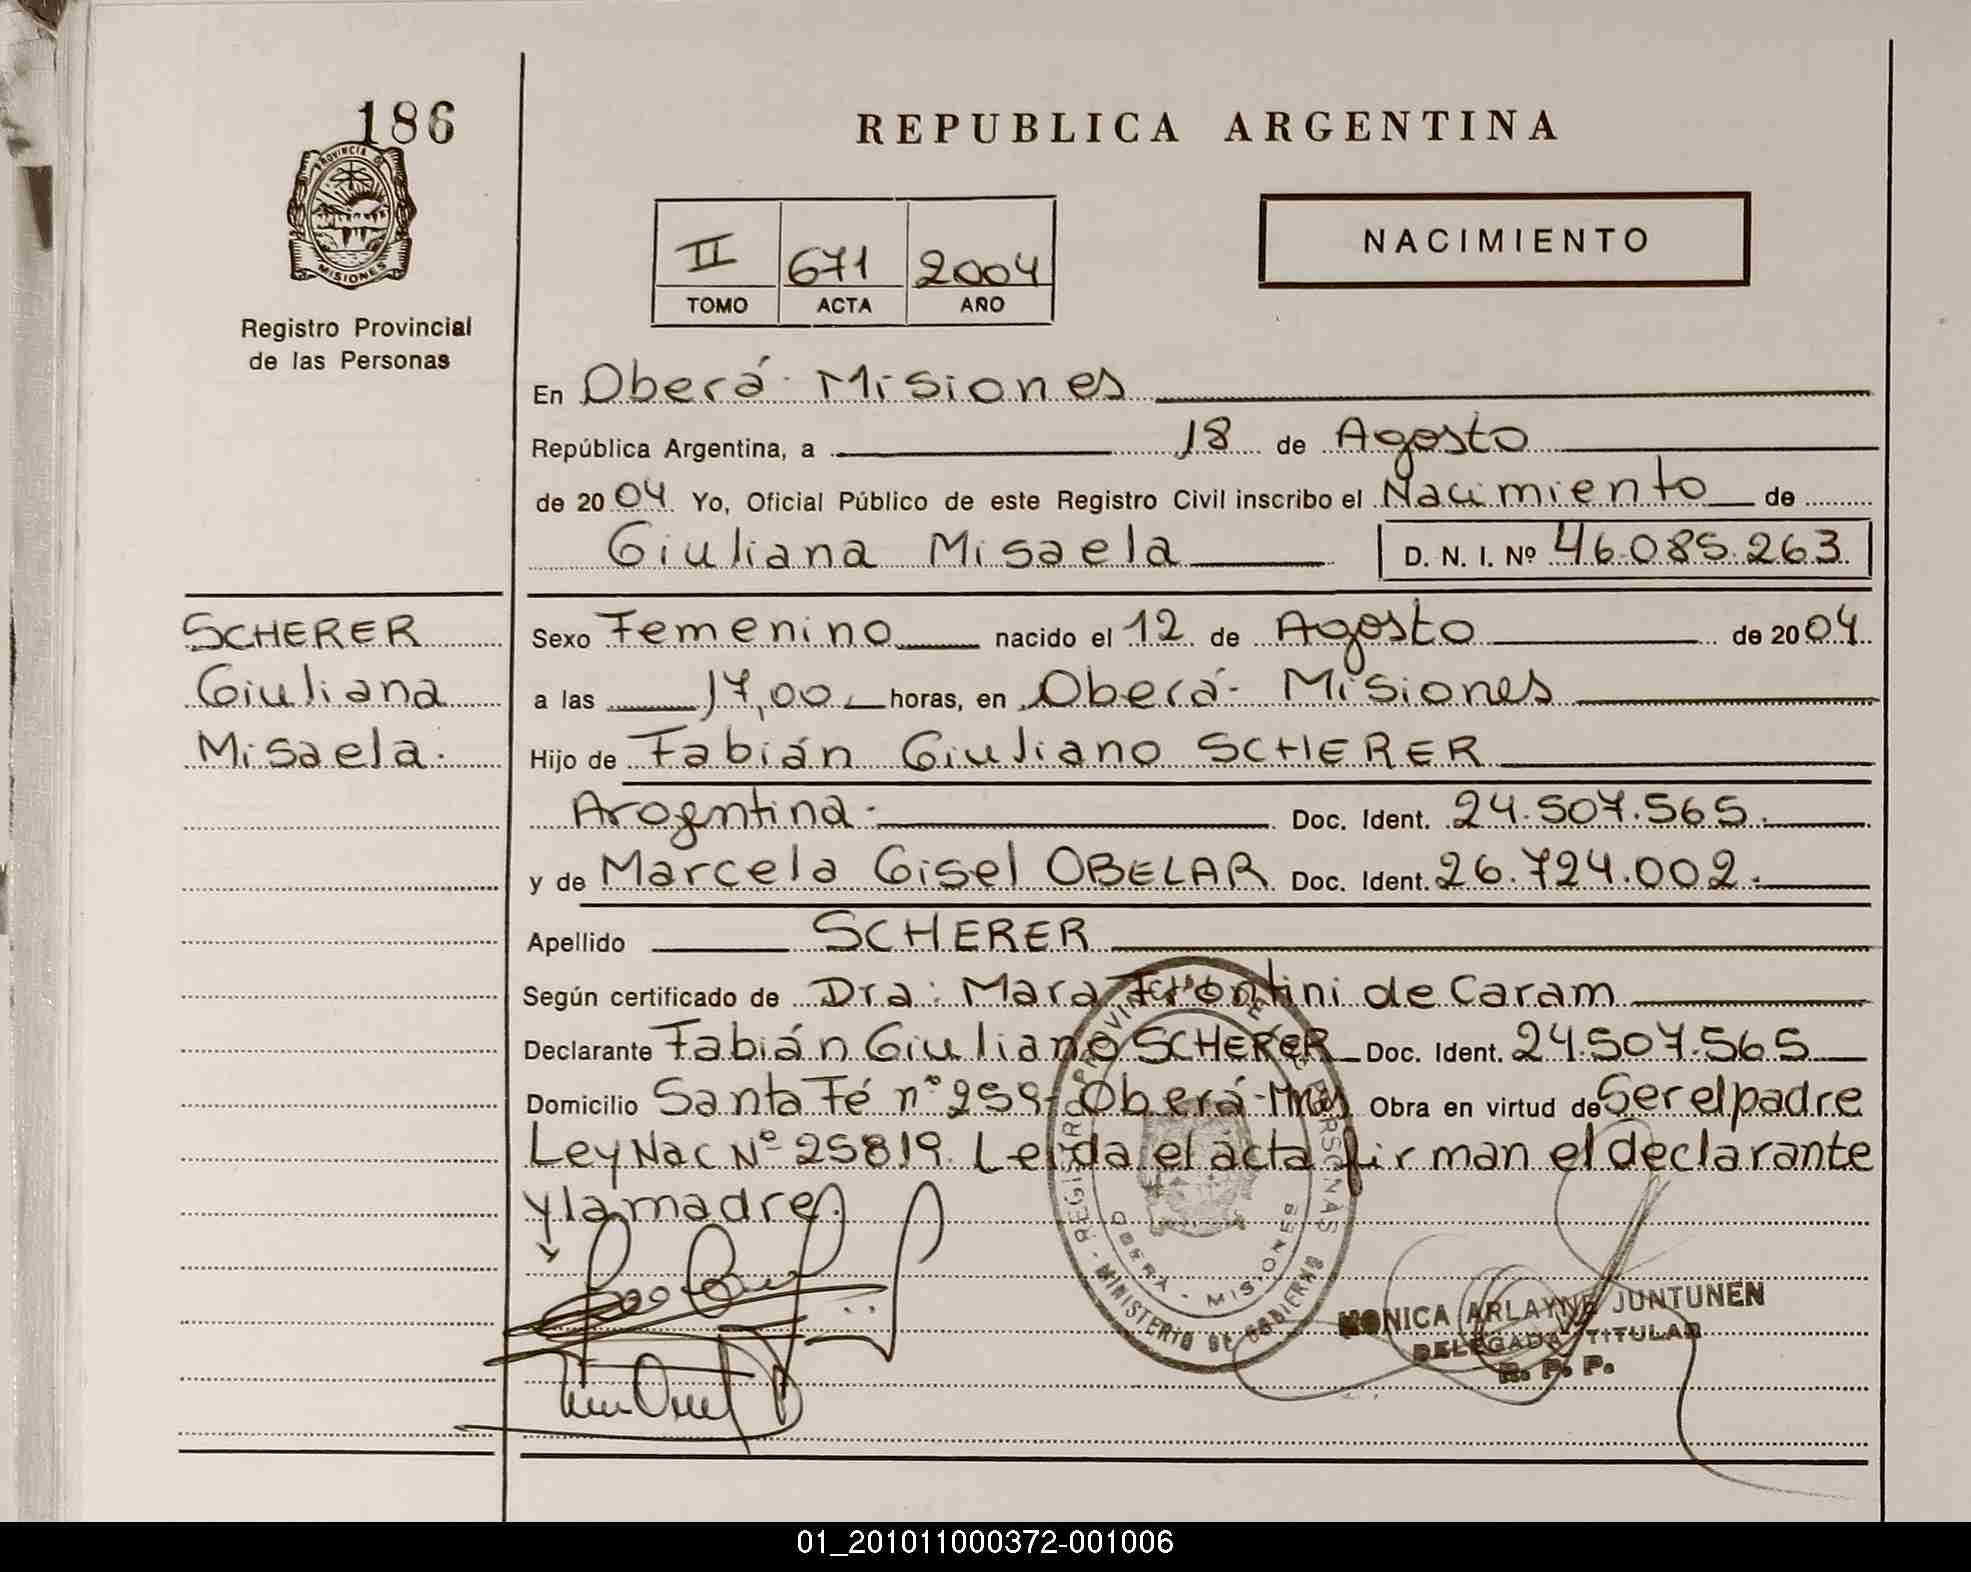 186
PROVINCIA DE
MISIONES
Registro Provincial
de las Personas
REPUBLICA ARGENTINA
II 671 2004
TOMO ACTA AÑO
NACIMIENTO
En Oberá - Misiones
República Argentina, a 18 de Agosto
de 2004 Yo, Oficial Público de este Registro Civil inscribo el Nacimiento de
Giuliana Misaela D. N. I. Nº 46.085.263
SCHERER
Giuliana
Misaela.
Sexo Femenino nacido el 12 de Agosto de 2004
a las 17,00 horas, en Oberá - Misiones
Hijo de Fabián Giuliano SCHERER
Arogentina - Doc. Ident. 24.507.565.
y de Marcela Gisel OBELAR Doc. Ident. 26.724.002.
Apellido SCHERER
Según certificado de Dra: Mara Frontini de Caram
Declarante Fabián Giuliano SCHERER Doc. Ident. 24.507.565
Domicilio Santa Fé nº 259 - Oberá - Mnes Obra en virtud de Ser el padre
Ley Nac Nº 25819. Leida el acta firman el declarante
y la madre.
REGISTRO PROVINCIAL DE LAS PERSONAS
OBERÁ - MISIONES
- MINISTERIO DE GOBIERNO
MONICA ARLAYNE JUNTUNEN
DELEGADA TITULAR
R. P. P.
01_201011000372-001006